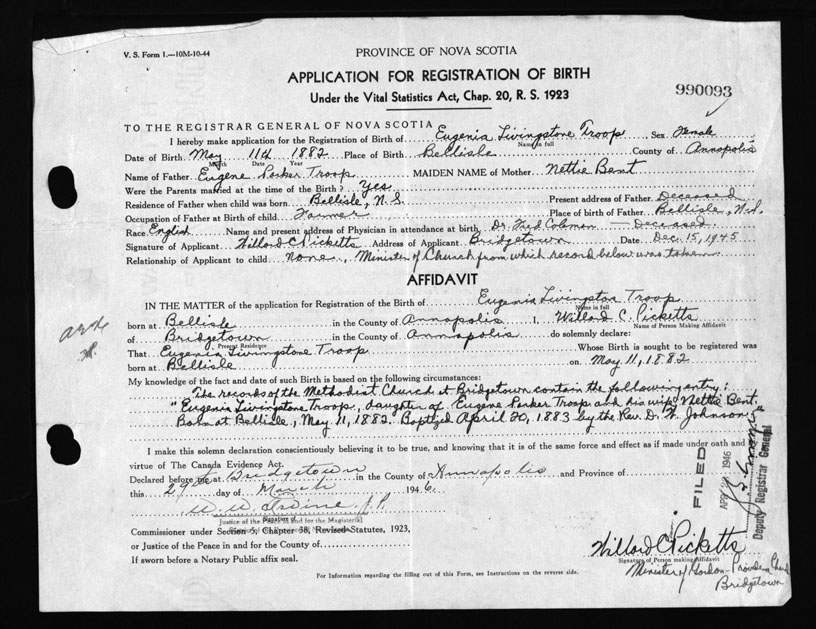 V. S. Form 1.—10M-10-44
PROVINCE OF NOVA SCOTIA
APPLICATION FOR REGISTRATION OF BIRTH
Under the Vital Statistics Act, Chap. 20, R. S. 1923
990093
TO THE REGISTRAR GENERAL OF NOVA SCOTIA
I hereby make application for the Registration of Birth of Eugenia Livingstone Troop Sex Female
Name in full
Date of Birth May 11th 1882 Place of Birth Bellisle County of Annapolis
Month Day Year
Name of Father Eugene Parker Troop MAIDEN NAME of Mother Nettie Bent
Were the Parents married at the time of the Birth? Yes
Residence of Father when child was born Bellisle, N.S. Present address of Father Deceased
Occupation of Father at Birth of child Farmer Place of birth of Father Bellisle, N.S.
Race English Name and present address of Physician in attendance at birth Dr. Fred Coleman — Deceased
Signature of Applicant Willard C Picketts Address of Applicant Bridgetown Date Dec. 15, 1945
Relationship of Applicant to child none, Minister of Church from which record below was taken
AFFIDAVIT
IN THE MATTER of the application for Registration of the Birth of Eugenia Livingston Troop
Name in full
born at Bellisle in the County of Annapolis I, Willard C. Picketts
Name of Person Making Affidavit
of Bridgetown in the County of Annapolis do solemnly declare:
Present Residence
That Eugenia Livingstone Troop Whose Birth is sought to be registered was
born at Bellisle on May 11, 1882
My knowledge of the fact and date of such Birth is based on the following circumstances:
The records of the Methodist Church at Bridgetown contain the following entry:
"Eugenia Livingstone Troop, daughter of Eugene Parker Troop and his wife Nettie Bent.
Born at Bellisle, May 11, 1882. Baptized April 20, 1883 by the Rev. D. W. Johnson"
I make this solemn declaration conscientiously believing it to be true, and knowing that it is of the same force and effect as if made under oath and by
virtue of The Canada Evidence Act.
Declared before me at Bridgetown in the County of Annapolis and Province of
this 29th day of March 1946
J.P.
Signature of
Justice of the Peace in and for the Magisterial
Commissioner under Section 5, Chapter 38, Revised Statutes, 1923,
or Justice of the Peace in and for the County of
If sworn before a Notary Public affix seal.
FILED
1946
Deputy Registrar General
Willard C Picketts
Signature of Person making Affidavit
Minister of Gordon-Providence Church
Bridgetown
For Information regarding the filling out of this Form, see Instructions on the reverse side.